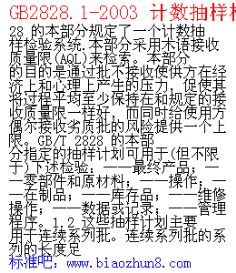 GB2828.1-2003 计数抽样检
28 的本部分规定了一个计数抽
样检验系统.本部分采用术语接收
质量限(AQL)来检索。本部分
的目的是通过批不接收使供方在经
济上和心理上产生的压力，促使其
将过程平均至少保持在和规定的接
收质量限一样好，而同时给使用方
偶尔接收劣质批的风险提供一个上
限。GB/T 2828 的本部
分指定的抽样计划可用于(但不限
于)下述检验：——最终产品；—
—零部件和原材料；——操作；—
—在制品；——库存品；——维修
操作；——数据或记录；——管理
程序。1.2 这些抽样计划主要
用于连续系列批。连续系列批的系
列的长度足
标准吧:www.biaozhun8.com